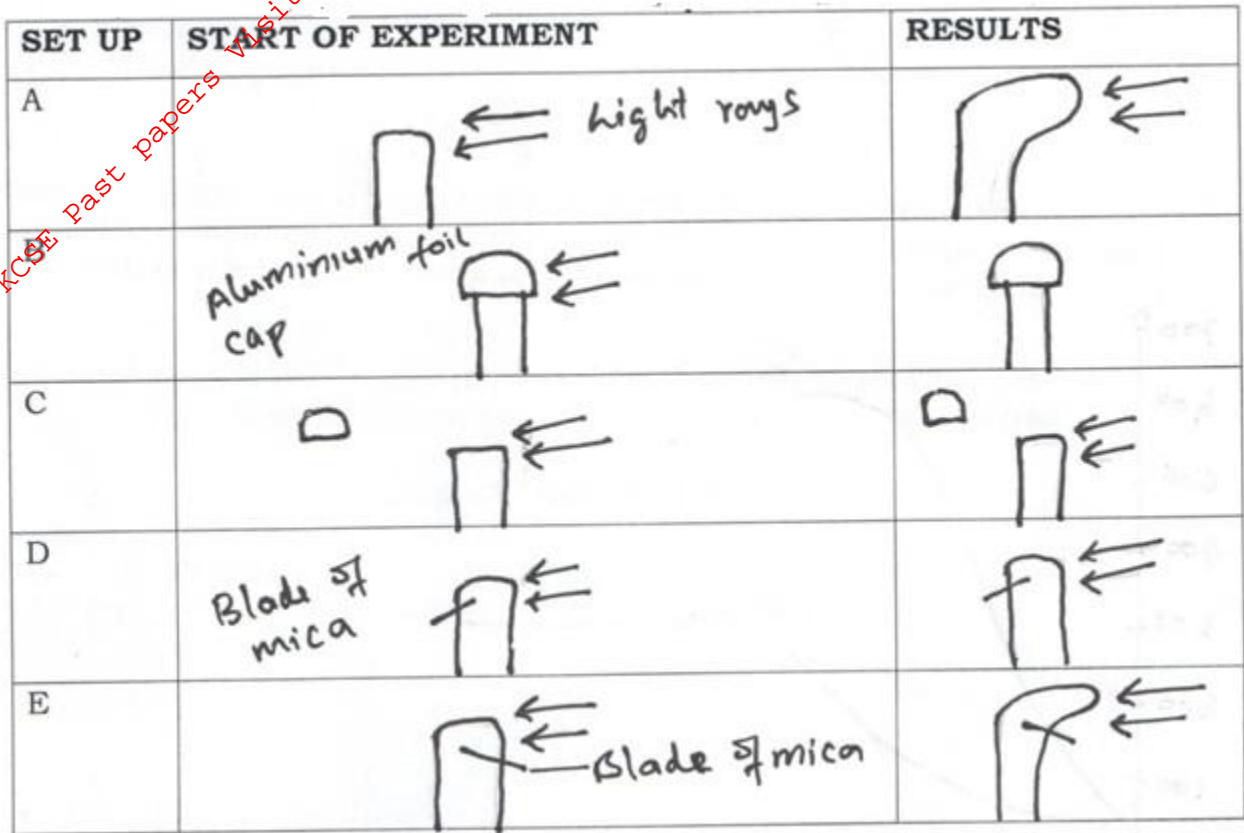 KCSE Past papers visit
SET UP START OF EXPERIMENT RESULTS
A
Light rays
B
Aluminium foil
cap
C
D
Blade of
mica
E
Blade of mica